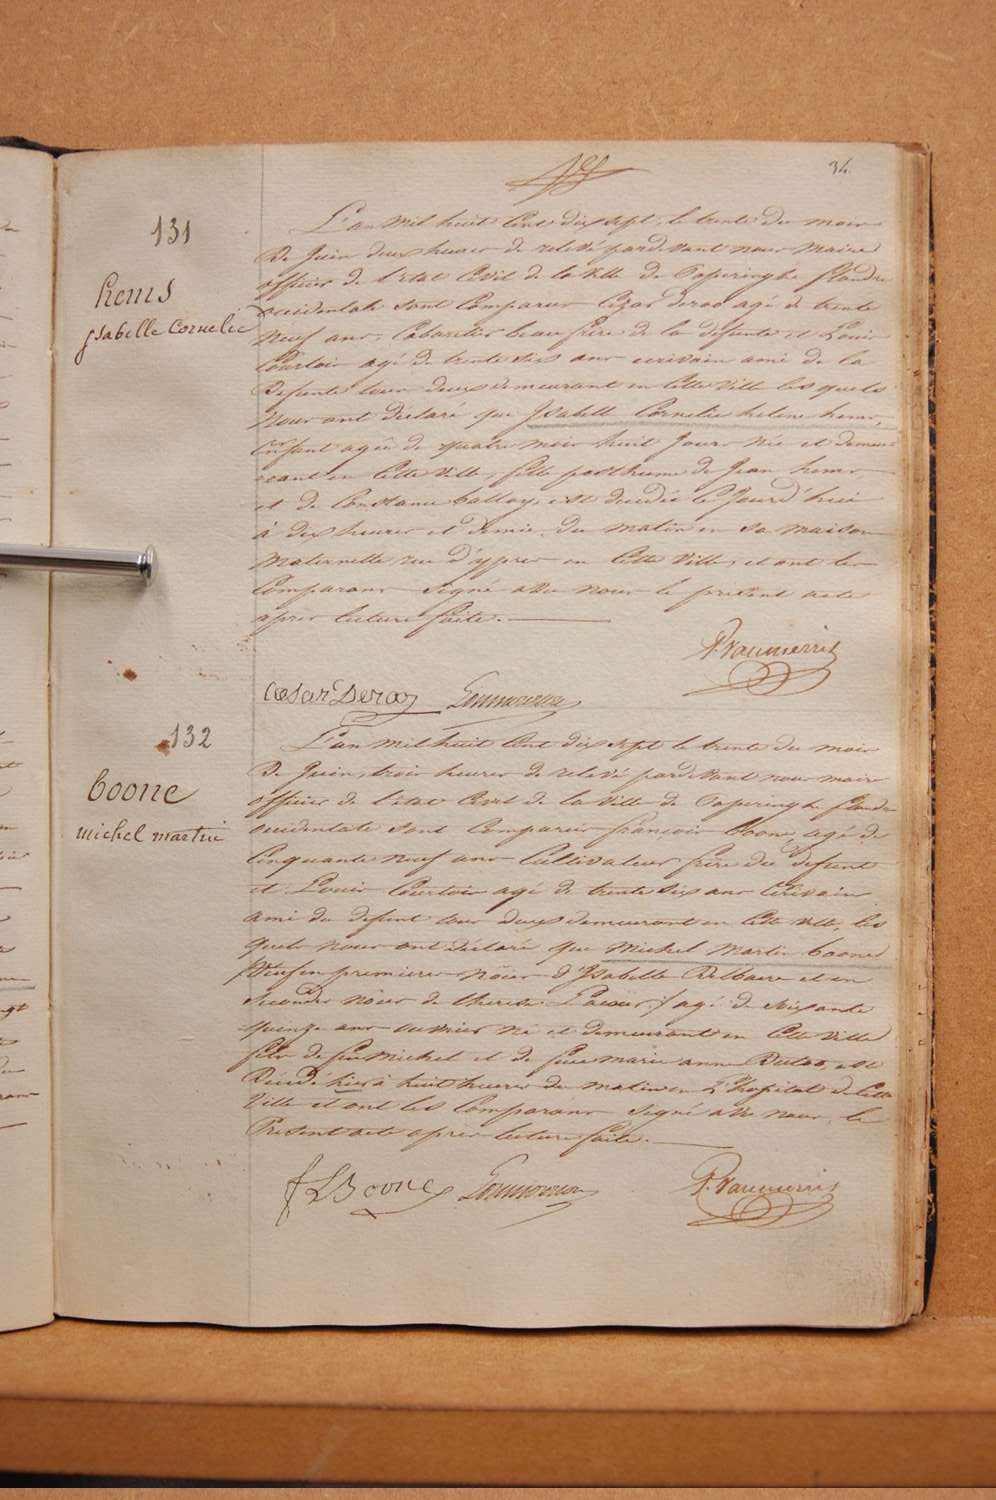 34.
131
hems
Ysabelle Cornelie
L'an mil huit Cent dix sept, le trente du mois
De Juin deux heures de relevé pardevant nous Maire
officier de l'état Civil de la ville de Poperinghe flandre
occidentale sont Comparus Cezar Deroo agé de trente
Neuf ans, Cabaretier beau frère de la defunte, et Louis
Courtois agé de trente six ans ecrivain ami de la
Defunte tous deux demeurant en Cette ville les quels
Nous ont déclaré que Isabelle Cornelie helene hems,
Enfant agée de quatre mois huit Jours née et demeu-
rant en Cette ville, fille posthume de Jean hems
et de Constance, est decedée Ce Jourd'hui
à dix heures et demie du matin en sa maison
Maternelle rue d'ypres en Cette ville, et ont les
Comparans signé avec nous le present acte
apres lecture faite.
Cæsar Deroo
132
boone
michel martin
L'an mil huit Cent dix sept le trente du mois
De Juin, trois heures de relevé pardevant nous maire
officier de l'état Civil de la ville de Poperinghe flandre
occidentale sont Comparus françois boone, agé de
Cinquante neuf ans Cultivateur frère du defunt
et Louis Courtois agé de trente six ans Ecrivain
ami du defunt tous deux demeurant en Cette ville, les
quels nous ont déclaré que Michel Martin boone
Veuf en premieres nôces d'Ysabelle Delbaere et en
Secondes nôces de therese agé de soixante
quinze ans ouvrier né et demeurant en Cette ville
fils de feu Michel et de feue marie anne, est
Décédé hier à huit heures du matin en L'Hopital de Cette
Ville et ont les Comparans signé avec nous, le
Present acte après lecture faite.
f L Boone